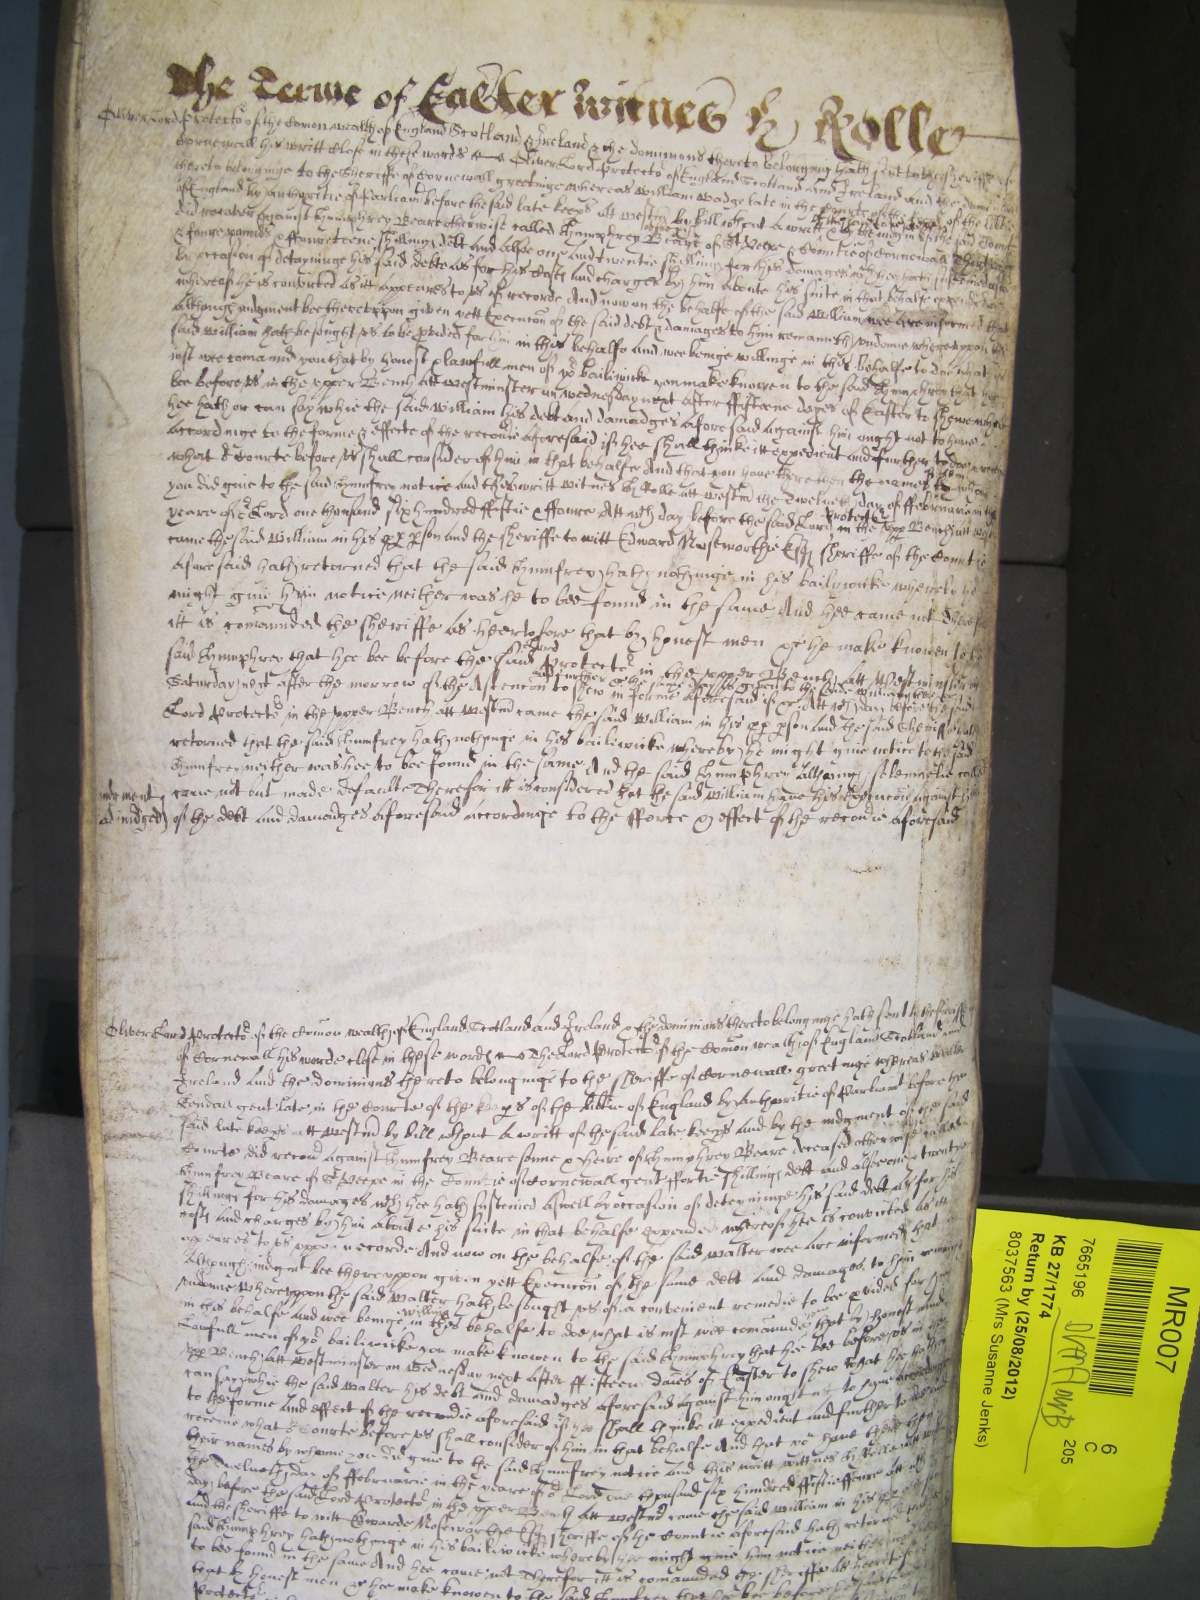 The Terme of Easter Witnes H Rolle
Oliver Lord Protector of the Comon wealth of England Scotland & Ireland & the dominions thereto belonging hath sent to the Sheriffe of
Cornewall his writt close in these words Oliver Lord Protector of England Scotland and Ireland and the dominions
thereto belonginge to the Sheriffe of Cornewall greetinge whereas William Wadge late in the Courte of the
of England by authoritie of Parliamt before the said late keeps att Westm by bill wthout a writt & by the judgmt of the said Courte
did recover against Humphrey Beare otherwise called Humphrey Beare of St Veepe Countie of Cornewall
& foure pounds & fourteene shillings debt and alsoe one and twentie shillings for his damages wch hee hath susteined
by occasion of detayninge his said debt as for his costs and charges by him aboute his suite in that behalfe expended
whereof he is convicted as itt appeares to us of recorde And now on the behalfe of the said William wee are informed that
although judgment bee thereuppon given yett Execucon of the said debt & damages to him remaineth undonne whereuppon the
said William hath besought us to be pvided for him in this behalfe and wee beinge willinge in this behalfe to doe what is
just wee comaund you that by honest & lawfull men of yor bailiwicke you make knowen to the said Humphrey that hee
bee before us in the upper Bench att Westminster on Wednesday next after fifteene dayes of Easter to shew what
hee hath or can say whie the said William his debt and damadges aforesaid against him ought not to have
accordinge to the forme & effecte of the recorde aforesaid if hee shall thinke itt expedient and further to doe & receive
what or Courte before us shall consider of him in that behalfe And that you have there then the names by whom
you did give to the said Humfrey notice and this writt witnes H Rolle att Westm the Twelueth day of ffebruarie in the
yeare of or Lord one thousand six hundred fiftie & foure Att wch day before the said Lord Protector in the upp Bench att Westm
came the said William in his pp pson and the sheriffe to witt Edward Noseworthie Esq sheriffe of the Countie
aforesaid hath retorned that the said Humfrey hath nothinge in his bailywicke whereby he
might give him notice neither was he to bee found in the same And hee came not Therefore
itt is comaunded the sheriffe as heertofore that by honest men &c he make knowen to the
said Humphrey that hee bee before the said Lord Protector in the upper Bench att Westminster on
Saturday next after the morrow of the Ascencon to shew in forme aforesaid if &c Att wch day before the said
Lord Protector in the upper Bench att Westm came the said William in his pp pson And the said Sheriffe hath
retorned that the said Humfrey hath nothinge in his bailiwicke whereby he might give notice to the said
Humfrey neither was hee to bee found in the same And the said Humphrey althoughe solemnelie called
came not but made default Therefore itt is considered that the said William have his Execucon against him
of the debt and damadges aforesaid accordinge to the fforce & effect of the recorde aforesaid
Judgment
adiudged
Oliver Lord Protector of the Comon wealth of England Scotland and Ireland & the dominions thereto belonginge hath sent to the Sheriffe
of Cornewall his worde close in these words The Lord Protector of the Comon wealth of England Scotland and
Ireland and the dominions thereto belonginge to the sheriffe of Cornewall greetinge whereas Walter
Kendall gent late in the Courte of the keeps of the libtie of England by authoritie of Parliamt before the
said late keeps att Westm by bill wthout a writt of the said late keeps and by the judgment of the said
Courte did recover against Humfrey Beare sonne & heire of Humphrey Beare deceased otherwise called
Humfrey Beare of St Veepe in the Countie of Cornewall gent ffortie shillings debt and alsoe one & twentie
shillings for his damages wch hee hath susteined aswell by occasion of deteyninge his said debt as for his
costs and charges by him aboute his suite in that behalfe expended whereof hee is convicted as itt
appeares to us uppon recorde And now on the behalfe of the said Walter wee are informed that
Although judgmt bee thereuppon given yett Execucon of the same debt and damages to him remaineth
undonne Whereuppon the said Walter hath besought us of a convenient remedie to bee pvided for him
in this behalfe and wee beinge willing in this behalfe to doe what is just wee comaund you that by honest and
lawfull men of yor bailiwicke you make knowen to the said Humphrey that hee bee before us in the
upp Bench att Westminster on Wednesday next after ffifteen daies of Easter to shew what hee hath or
can say whie the said Walter his debt and damadges aforesaid against him ought not to have accordinge
to the forme and effect of the recorde aforesaid if hee shall thinke itt expedient and further to doe and
receive what or Courte before us shall consider of him in that behalfe And that you have there then
their names by whome you did give to the said Humfrey notice and this writt wittnes H Rolle att Westm
the Twelueth day of ffebruarie in the yeare of or Lord one thousand six hundred fiftie ffoure att wch
day before the said Lord Protector in the upper Bench att Westm came the said William in his pp
and the sheriffe to witt Edwarde Noseworthie Esq sheriffe of the Countie aforesaid hath retorned
said Humphrey hath nothinge in his bailiwicke whereby hee might give him notice neither
to bee found in the same And hee came not Therefore itt is comaunded the sheriffe as heertofore
that by honest men &c hee make knowen to the said Humfrey that hee bee before the said
Protector
MR007
6
C
205
7665196
KB 27/1774
Return by (25/08/2012)
8037563 (Mrs Susanne Jenks)